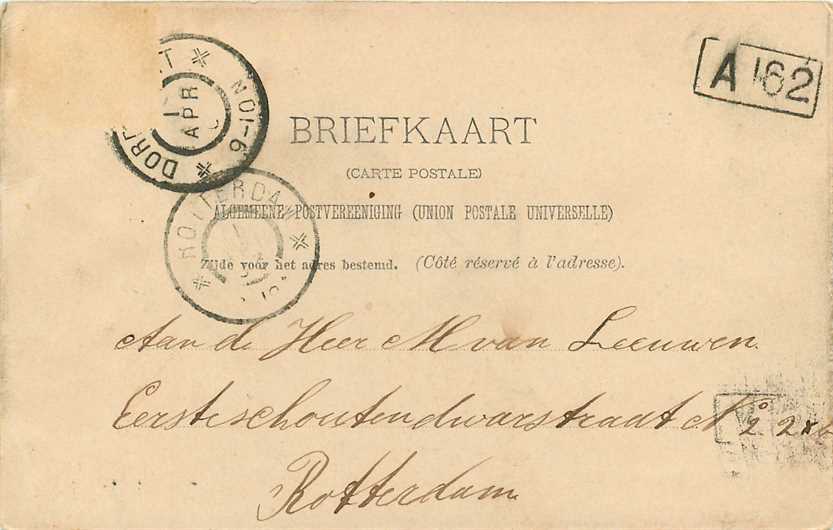 DOR T
APR
NOI-6
A 162
BRIEFKAART
(CARTE POSTALE)
ALGEMEENE POSTVEREENIGING (UNION POSTALE UNIVERSELLE)
ROTTERDAM
Zijde voor het adres bestemd. (Côté réservé à l'adresse).
Aan de Heer M van Leeuwen
Eersteschoutendwarstraat No 2
Rotterdam